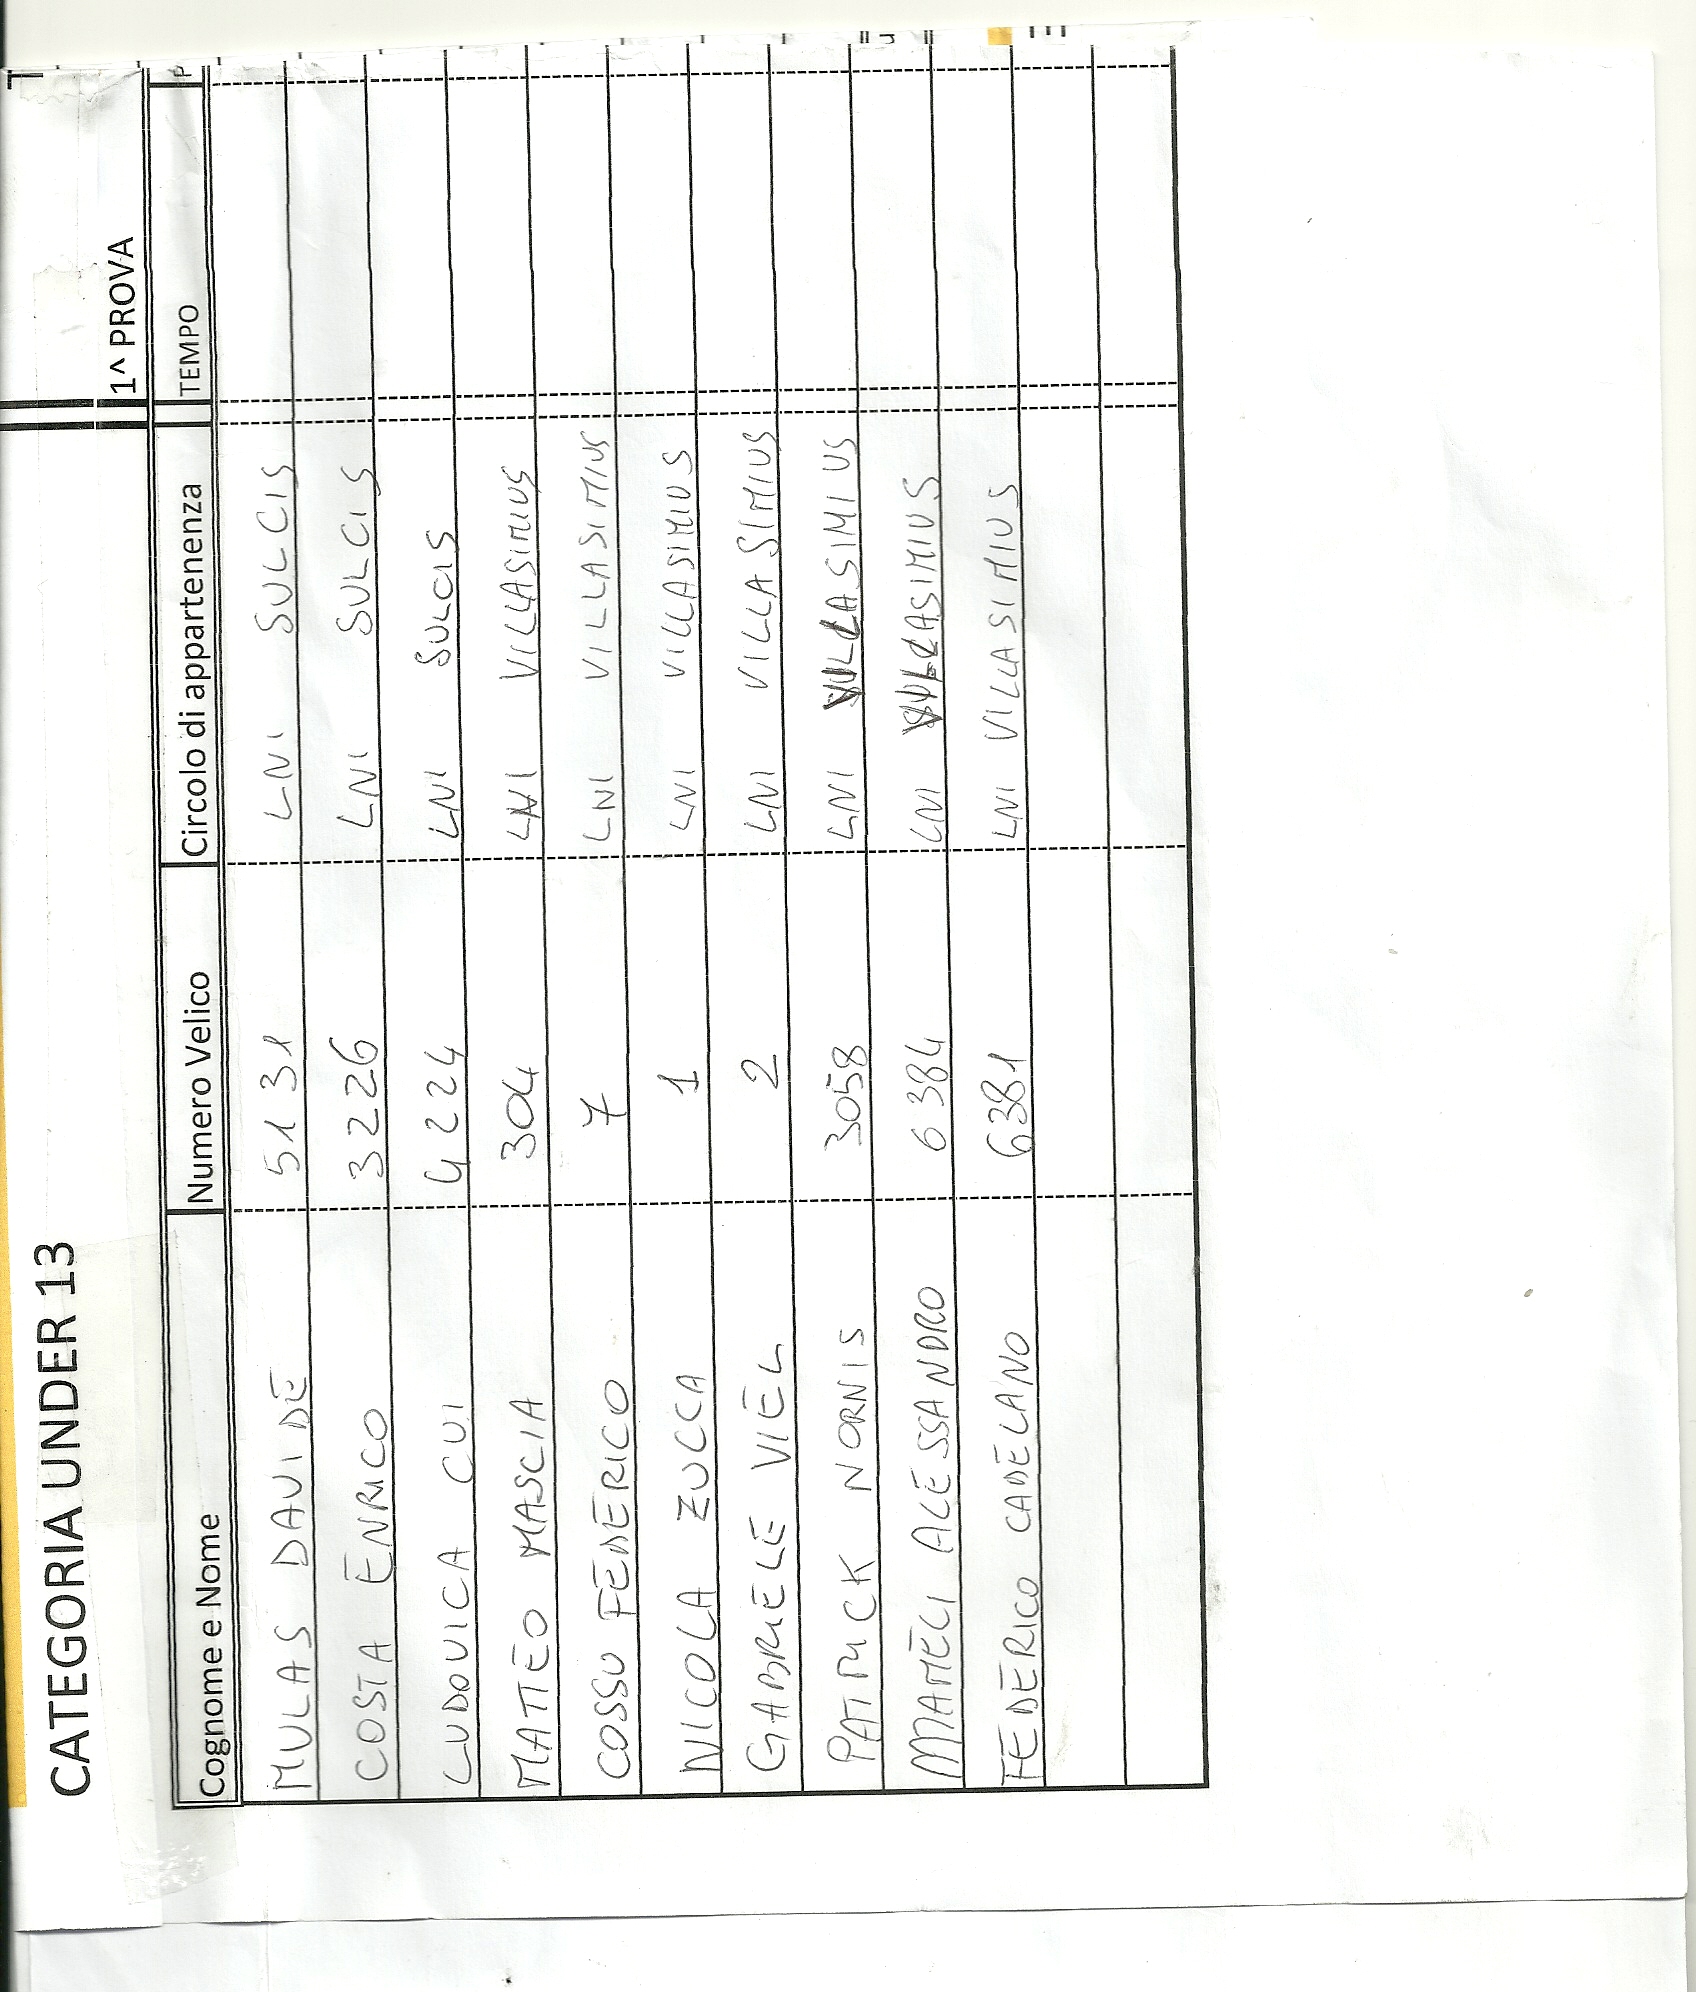 CATEGORIA UNDER 13
1^ PROVA
Cognome e Nome Numero Velico Circolo di appartenenza TEMPO
MULAS DAVIDE 5131 LNI SULCIS
COSTA ENRICO 3226 LNI SULCIS
LUDOVICA CUI 4224 LNI SULCIS
MATTEO MASCIA 304 LNI VILLASIMIUS
COSSU FEDERICO 7 LNI VILLASIMIUS
NICOLA ZUCCA 1 LNI VILLASIMIUS
GABRIELE VIEL 2 LNI VILLASIMIUS
PATRICK NORNIS 3058 LNI VILLASIMIUS
MAMELI ALESSANDRO 6384 LNI VILLASIMIUS
FEDERICO CADELANO 6381 LNI VILLASIMIUS